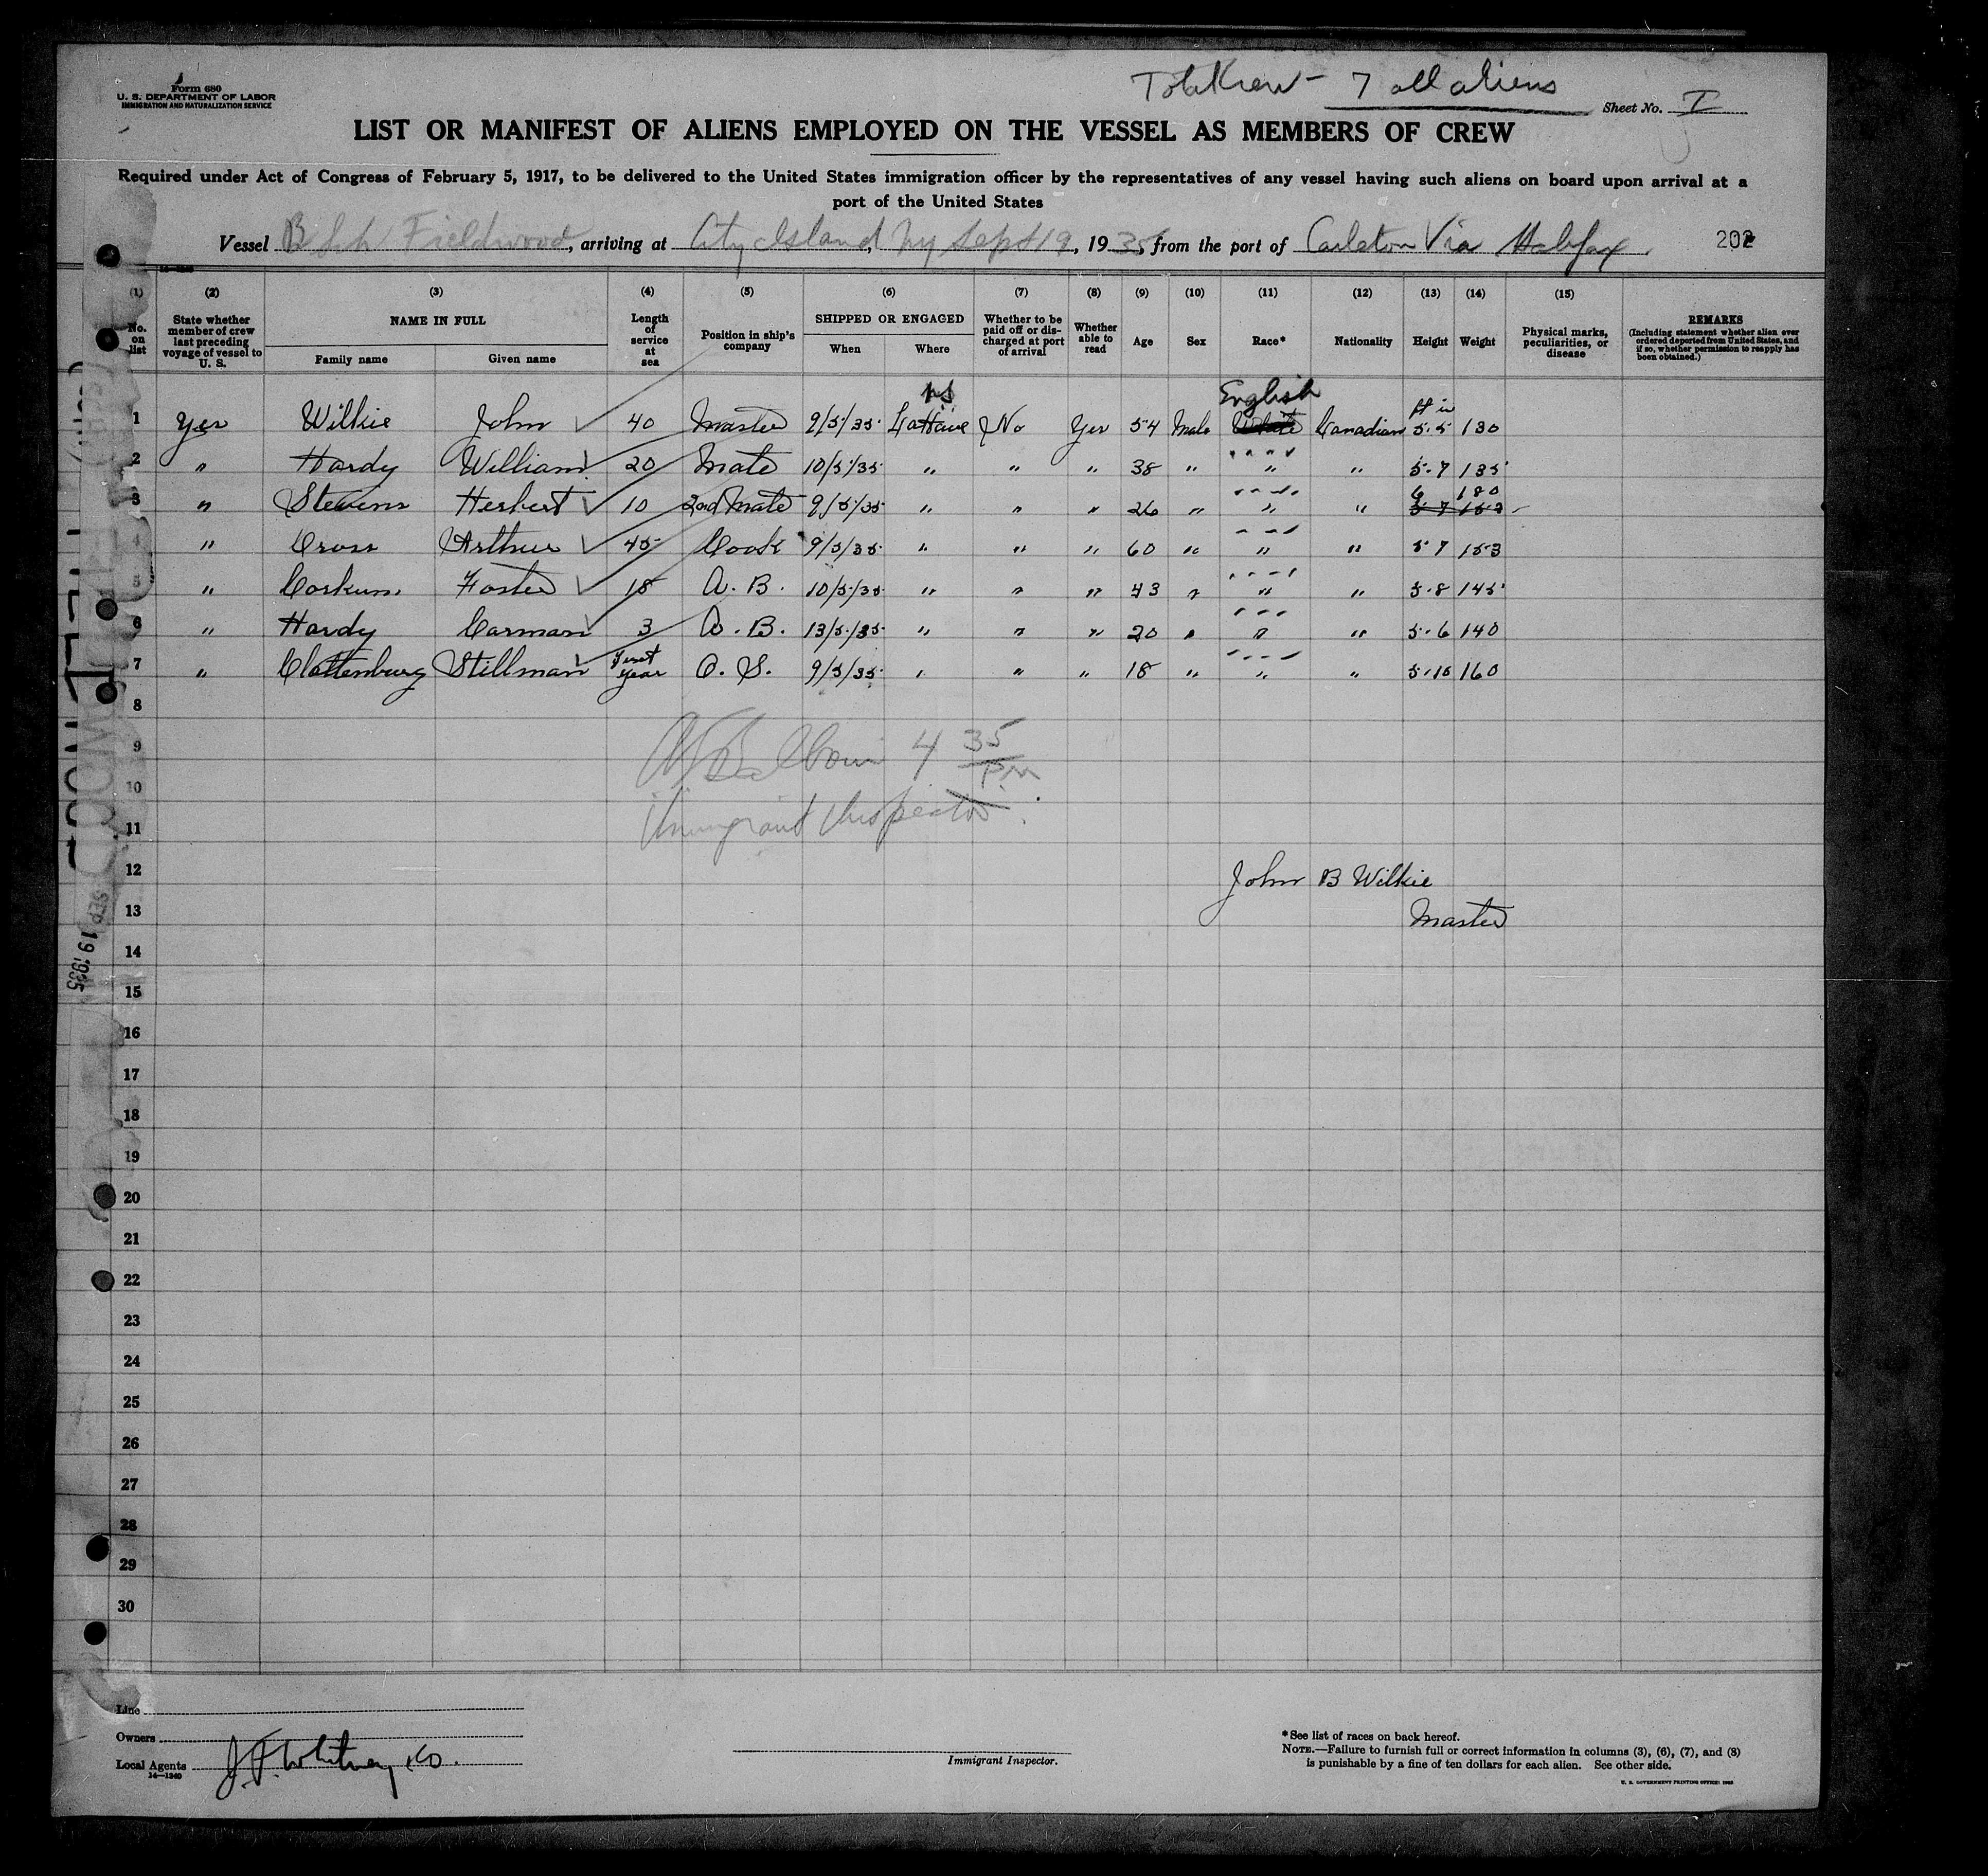 Form 680
U. S. DEPARTMENT OF LABOR
IMMIGRATION AND NATURALIZATION SERVICE
Total Crew - 7 all aliens
Sheet No. I
LIST OR MANIFEST OF ALIENS EMPLOYED ON THE VESSEL AS MEMBERS OF CREW
Required under Act of Congress of February 5, 1917, to be delivered to the United States immigration officer by the representatives of any vessel having such aliens on board upon arrival at a
port of the United States
Vessel B Sch Fieldwood, arriving at City Island, Ny Sept 19, 1935, from the port of Carleton Via Halifax 202
(1) (2) (3) (4) (5) (6) (7) (8) (9) (10) (11) (12) (13) (14) (15)
No. on list State whether member of crew last preceding voyage of vessel to U. S. NAME IN FULL Family name Given name Length of service at sea Position in ship's company SHIPPED OR ENGAGED When Where Whether to be paid off or discharged at port of arrival Whether able to read Age Sex Race* Nationality Height Weight Physical marks, peculiarities, or disease REMARKS (Including statement whether alien ever ordered deported from United States, and if so, whether permission to reapply has been obtained.)
NS English ft in
1 Yes Wilkie John 40 Master 9/5/35 LaHave No Yes 54 Male White Canadian 5.5 130
2 " Hardy William 20 Mate 10/5/35 " " " 38 " " " 5.7 135
6 180
3 " Stevens Herbert 10 2nd Mate 9/5/35 " " " 26 " " "
4 " Cross Arthur 45 Cook 9/5/35 " " " 60 " " " 5 7 153
5 " Corkum Foster 18 A. B. 10/5/35 " " " 43 " " " 5.8 145
6 " Hardy Carman 3 A. B. 13/5/35 " " " 20 " " " 5.6 140
7 " Clattenburg Stillman First year O. S. 9/5/35 " " " 18 " " " 5.10 160
8
9 4 35 PM
10
11 Immigrant Inspector
12 John B Wilkie
13 Master
14
15
16
17
18
19
20
21
22
23
24
25
26
27
28
29
30
SEP 19 1935
Line
Owners
Local Agents J. F. Whitney & Co.
14—1240
Immigrant Inspector.
* See list of races on back hereof.
NOTE.—Failure to furnish full or correct information in columns (3), (6), (7), and (8)
is punishable by a fine of ten dollars for each alien. See other side.
U. S. GOVERNMENT PRINTING OFFICE